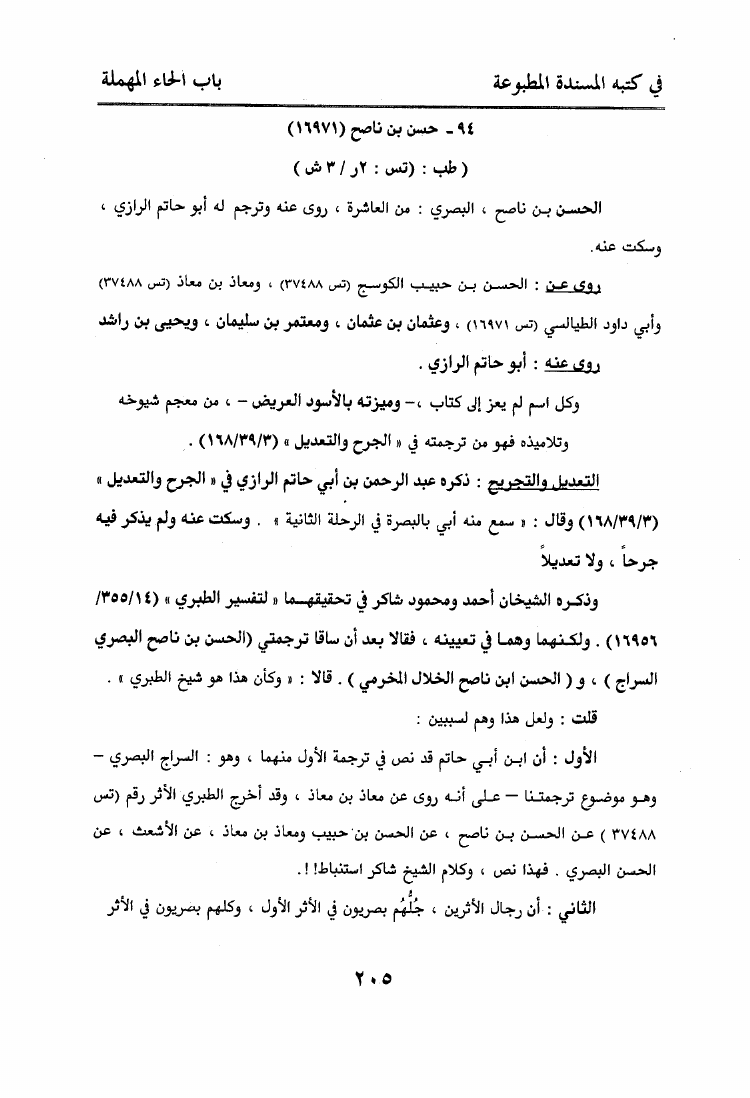 في كتبه المسندة المطبوعة باب الحاء المهملة
٩٤ ـ حسن بن ناصح (١٦٩٧١)
( طب : (تس : ٢ر / ٣ ش )
الحسن بـن ناصح ، البصري : من العاشرة ، روى عنه وترجم له أبو حاتم الرازي ،
وسكت عنه.
روى عـن : الحسـن بـن حبيـب الكوسـج (تس ٣٧٤٨٨) ، ومعاذ بن معاذ (تس ٣٧٤٨٨)
وأبي داود الطيالسي (تس ١٦٩٧١) ، وعثمان بن عثمان ، ومعتمر بن سليمان ، ويحيى بن راشد
روى عنه : أبو حاتم الرازي .
وكل اسم لم يعز إلى كتاب ،– وميزته بالأسود العريض – ، من معجم شيوخه
وتلاميذه فهو من ترجمته في « الجرح والتعديل » (١٦٨/٣٩/٣) .
التعديل والتجريح : ذكره عبد الرحمن بن أبي حاتم الرازي في « الجرح والتعديل »
(١٦٨/٣٩/٣) وقال : « سمع منه أبي بالبصرة في الرحلة الثانية » . وسكت عنه ولم يذكر فيه
جرحاً ، ولا تعديلاً
وذكـره الشيخان أحمد ومحمود شاكر في تحقيقهـما « لتفسير الطبري » (٣٥٥/١٤/
١٦٩٥٦) . ولكـنهما وهمـا في تعيينه ، فقالا بعد أن ساقا ترجمتي (الحسن بن ناصح البصري
السراج ) ، و ( الحسن ابن ناصح الخلال المخرمي ) . قالا : « وكأن هذا هو شيخ الطبري » .
قلت : ولعل هذا وهم لسببين :
الأول : أن ابـن أبـي حاتم قد نص في ترجمة الأول منهما ، وهو : السراج البصري –
وهـو موضـوع ترجمتـنا – عـلى أنـه روى عن معاذ بن معاذ ، وقد أخرج الطبري الأثر رقم (تس
٣٧٤٨٨ ) عـن الحسـن بـن ناصح ، عن الحسن بن حبيب ومعاذ بن معاذ ، عن الأشعث ، عن
الحسن البصري . فهذا نص ، وكلام الشيخ شاكر استنباط! !.
الثاني : أن رجال الأثرين ، جُلُّهُم بصريون في الأثر الأول ، وكلهم بصريون في الأثر
٢٠٥